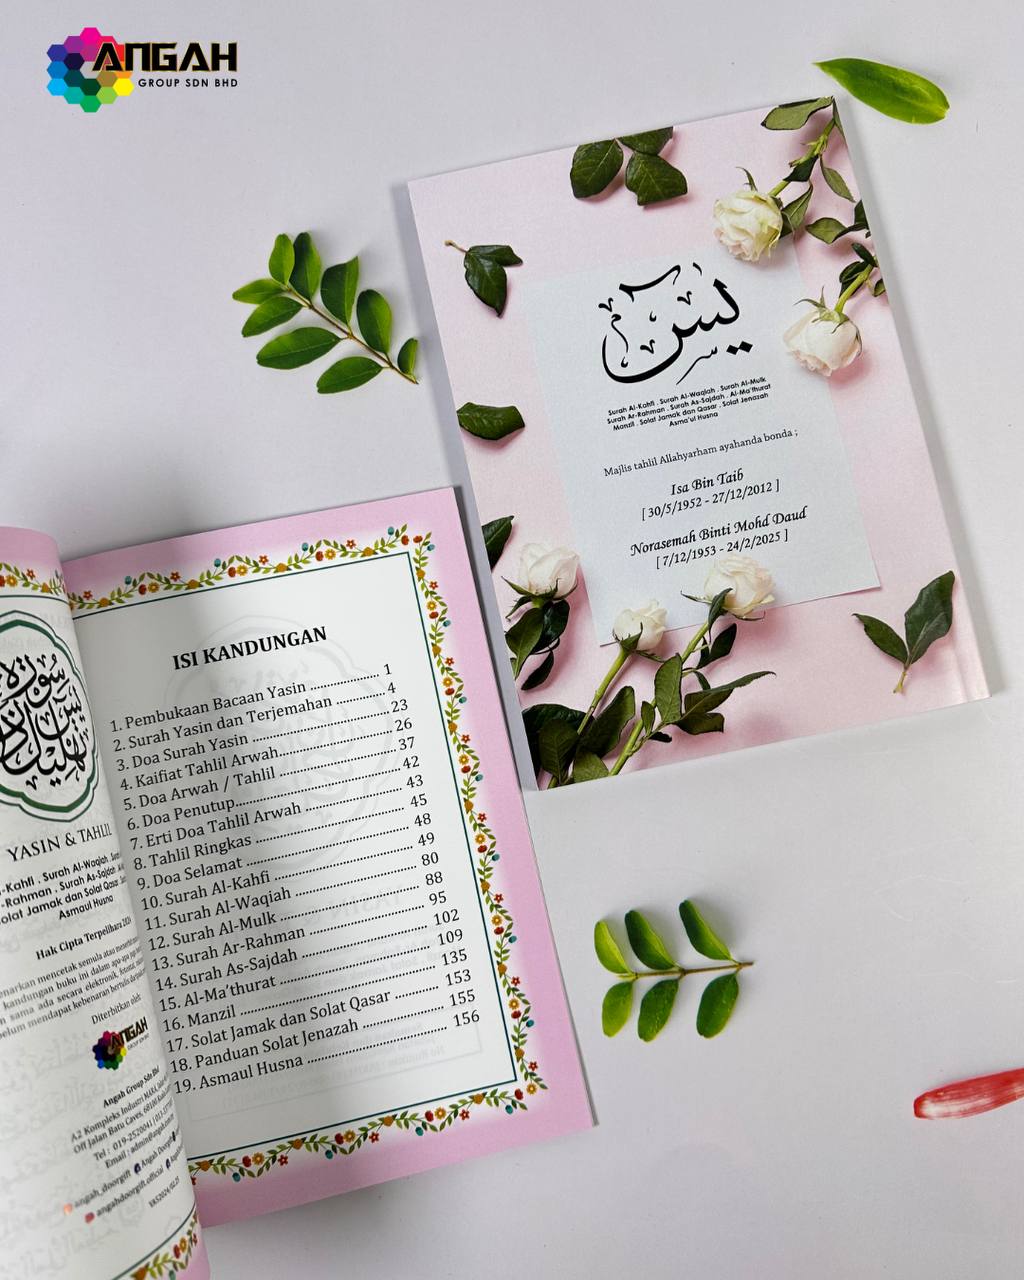 ANGAH
GROUP SDN BHD
يس
Surah Al-Kahfi . Surah Al-Waqiah . Surah Al-Mulk
Surah Ar-Rahman . Surah As-Sajdah . Al-Ma'thurat
Manzil . Solat Jamak dan Qasar . Solat Jenazah
Asma'ul Husna
Majlis tahlil Allahyarham ayahanda bonda ;
Isa Bin Taib
[ 30/5/1952 - 27/12/2012 ]
Norasemah Binti Mohd Daud
[ 7/12/1953 - 24/2/2025 ]
YASIN & TAHLIL
-Kahfi . Surah Al-Waqiah
-Rahman . Surah As-Sajdah
Solat Jamak dan Solat Qasar
Asmaul Husna
Hak Cipta Terpelihara
mencetak semula atau
kandungan buku ini dalam apa-apa
sama ada secara elektronik,
mendapat kebenaran bertulis
Diterbitkan oleh
ANGAH
Angah Group Sdn Bhd
A2 Kompleks Industri MARA,
Off Jalan Batu Caves, 68100
Tel : 019-2520041
Email :
angah_doorgift
angahdoorgift.official
ISI KANDUNGAN
1. Pembukaan Bacaan Yasin ................ 1
2. Surah Yasin dan Terjemahan ............ 4
3. Doa Surah Yasin ................ 23
4. Kaifiat Tahlil Arwah................ 26
5. Doa Arwah / Tahlil ................ 37
6. Doa Penutup................ 42
7. Erti Doa Tahlil Arwah ................ 43
8. Tahlil Ringkas ................ 45
9. Doa Selamat ................ 48
10. Surah Al-Kahfi ................ 49
11. Surah Al-Waqiah ................ 80
12. Surah Al-Mulk ................ 88
13. Surah Ar-Rahman ................ 95
14. Surah As-Sajdah ................ 102
15. Al-Ma'thurat ................ 109
16. Manzil ................ 135
17. Solat Jamak dan Solat Qasar ............ 153
18. Panduan Solat Jenazah ................ 155
19. Asmaul Husna ................ 156